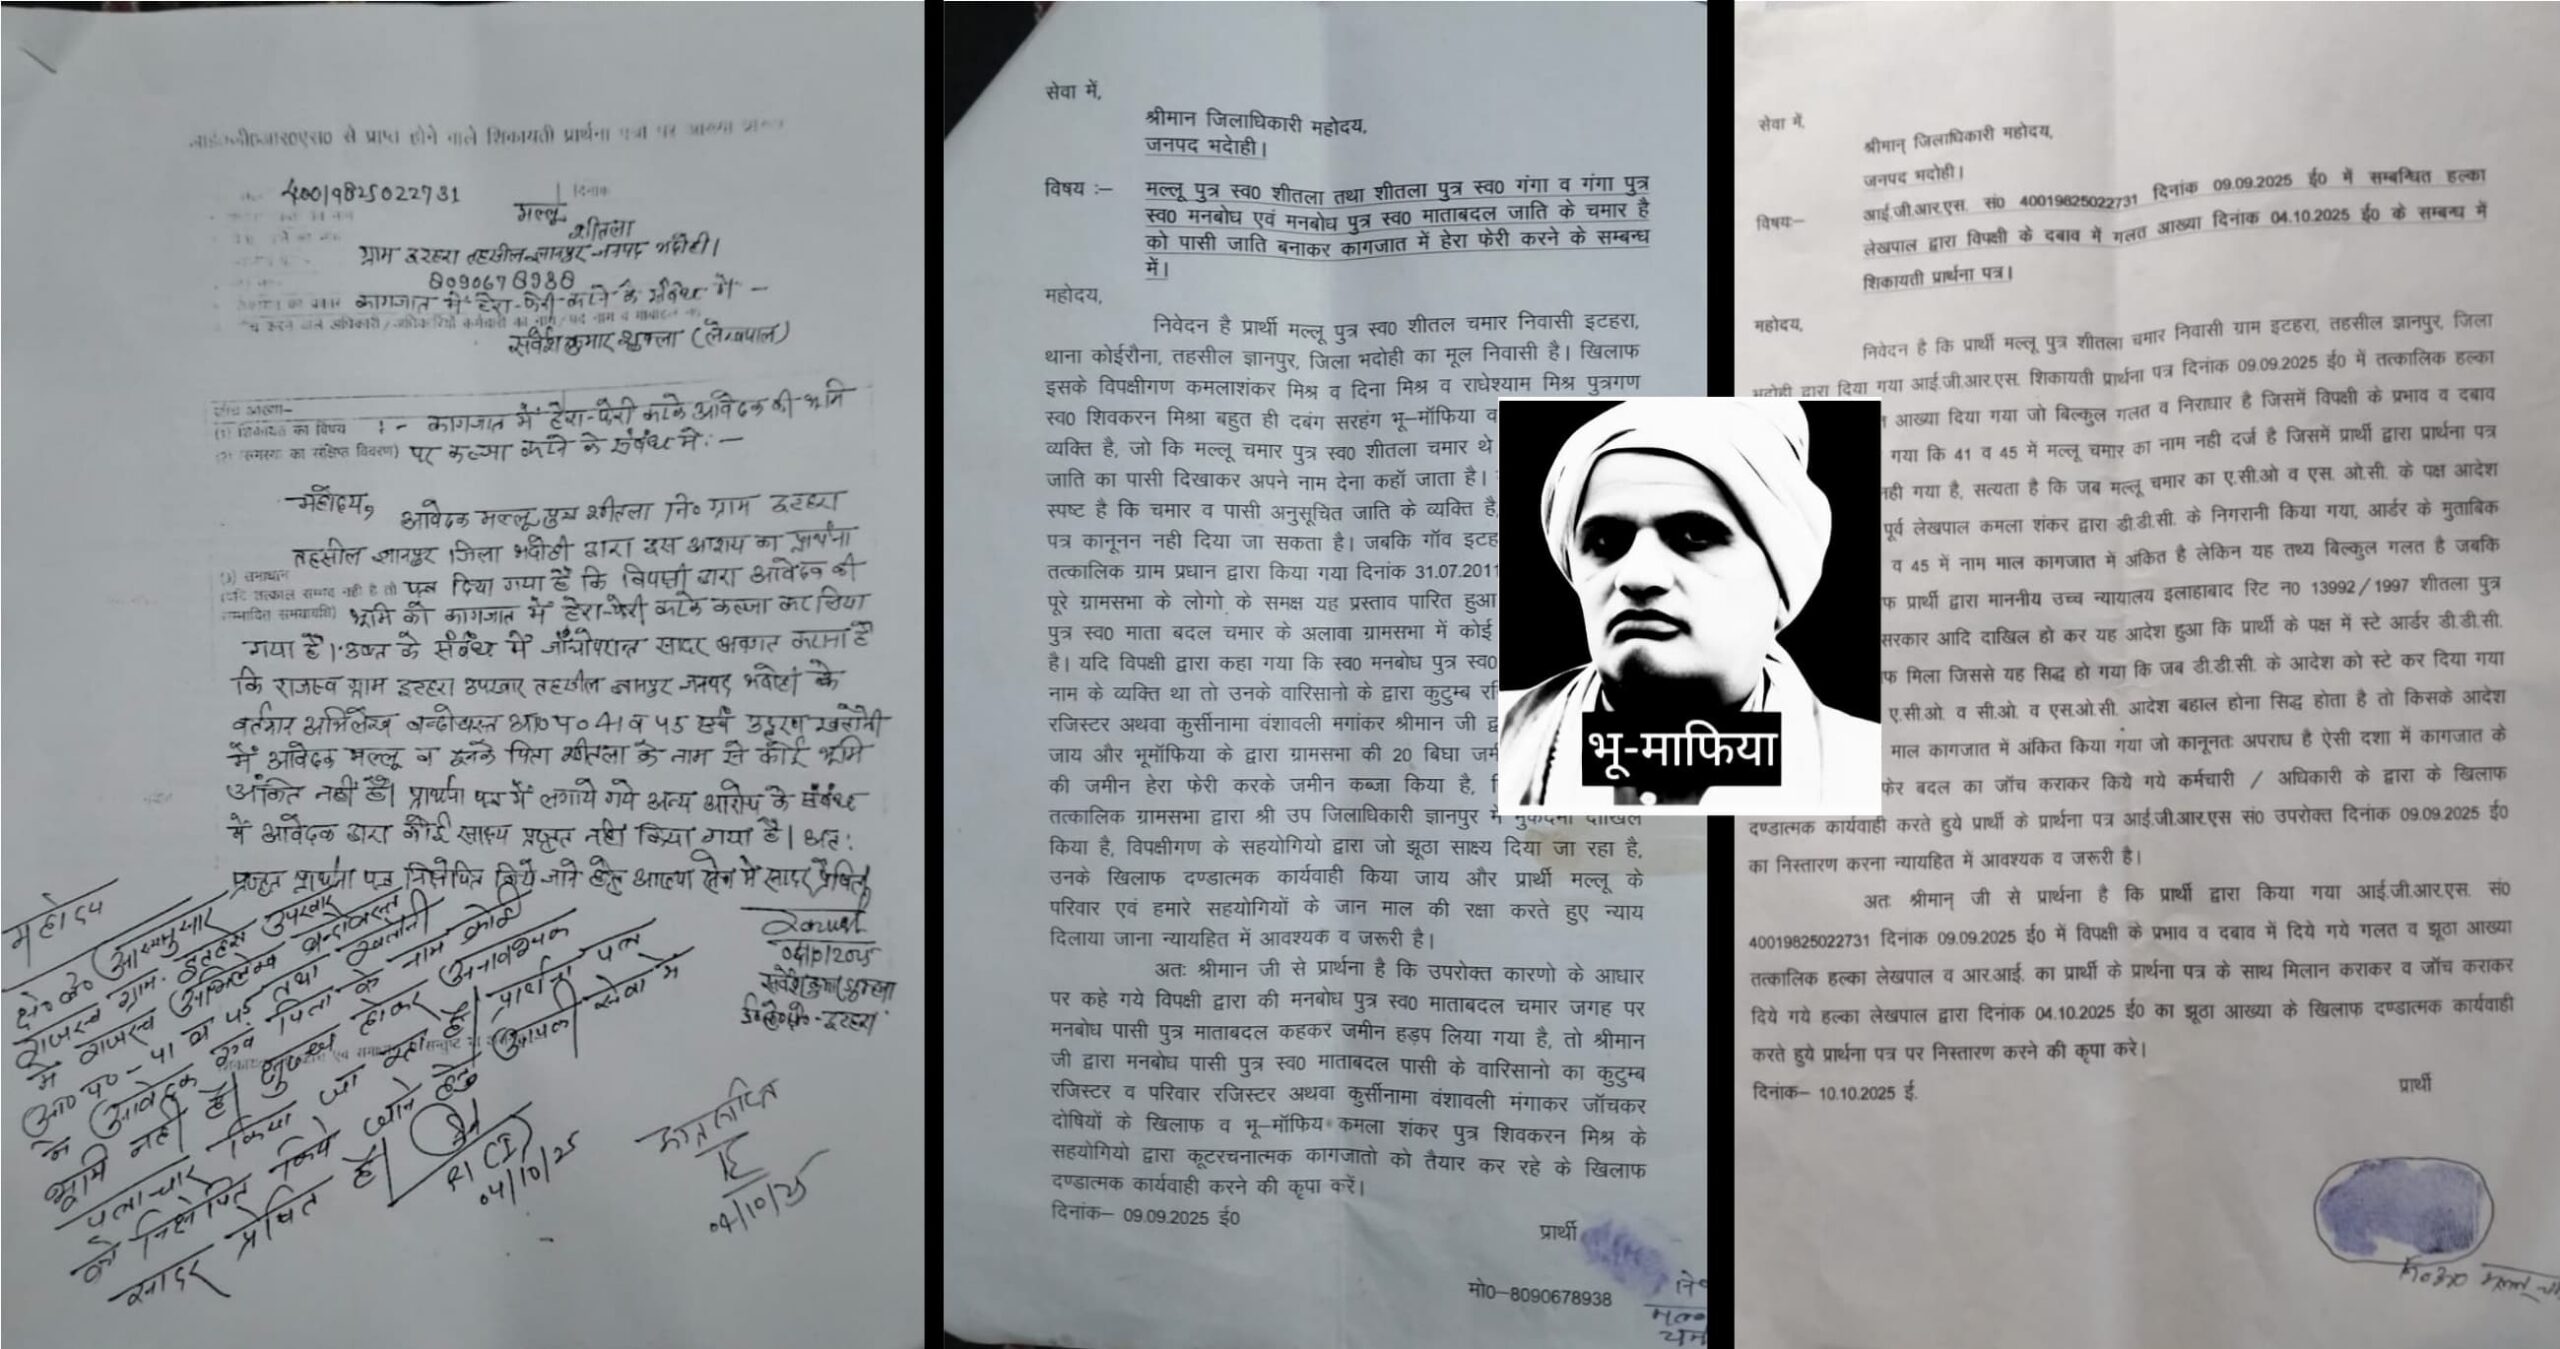 आई०जी०आर०एस० से प्राप्त होने वाले शिकायती प्रार्थना पत्रों पर आख्या
40019825022731
दिनांक
मल्लू
शीतला
ग्राम इटहरा तहसील ज्ञानपुर जनपद भदोही।
8090678938
कागजात में हेरा-फेरी करने के संबंध में -
सर्वेश कुमार शुक्ला (लेखपाल)
जाँच आख्या-
(1) शिकायत का विषय :- कागजात में हेरा-फेरी करके आवेदक की भूमि
(2) समस्या का संक्षिप्त विवरण) पर कब्जा करने के संबंध में :-
महोदय,
आवेदक मल्लू पुत्र शीतला नि० ग्राम इटहरा
तहसील ज्ञानपुर जिला भदोही द्वारा इस आशय का प्रार्थना
(3) समाधान
पत्र दिया गया है कि विपक्षी द्वारा आवेदक की
भूमि को कागजात में हेरा-फेरी करके कब्जा कर लिया
गया है। उक्त के संबंध में जाँचोपरान्त सादर अवगत कराना है
कि राजस्व ग्राम इटहरा उपरवार तहसील ज्ञानपुर जनपद भदोही के
वर्तमान अभिलेख बन्दोबस्त आ०प० 41 व 45 एवं उद्धरण खतौनी
में आवेदक मल्लू व इनके पिता शीतला के नाम से कोई भूमि
अंकित नहीं है। प्रार्थना पत्र में लगाये गये अन्य आरोप के संबंध
में आवेदक द्वारा कोई साक्ष्य प्रस्तुत नहीं किया गया है। अतः
प्रस्तुत प्रार्थना पत्र निक्षेपित किये जाने हेतु आख्या सेवा में सादर प्रेषित
04/10/2025
सर्वेश कुमार शुक्ला
महोदय
क्षे० ले० आख्यानुसार
राजस्व ग्राम- इटहरा उपरवार
में राजस्व अभिलेख बन्दोबस्त
आ०प०- 41 व 45 तथा खतौनी
में आवेदक एवं पिता के नाम कोई
भूमि नहीं है।
पत्राचार किया जा रहा है। प्रार्थना पत्र
को निक्षेपित किये जाने हेतु आपकी सेवा में
सादर प्रेषित है।
04/10/25
04/10/25
सेवा में,
श्रीमान जिलाधिकारी महोदय,
जनपद भदोही।
विषय :– मल्लू पुत्र स्व0 शीतला तथा शीतला पुत्र स्व0 गंगा व गंगा पुत्र
स्व0 मनबोध एवं मनबोध पुत्र स्व0 माताबदल जाति के चमार है
को पासी जाति बनाकर कागजात में हेरा फेरी करने के सम्बन्ध
में।
महोदय,
निवेदन है प्रार्थी मल्लू पुत्र स्व0 शीतल चमार निवासी इटहरा,
थाना कोईरौना, तहसील ज्ञानपुर, जिला भदोही का मूल निवासी है। खिलाफ
इसके विपक्षीगण कमलाशंकर मिश्र व दिना मिश्र व राधेश्याम मिश्र पुत्रगण
स्व0 शिवकरन मिश्रा बहुत ही दबंग सरहंग भू–मॉफिया व
व्यक्ति है, जो कि मल्लू चमार पुत्र स्व0 शीतला चमार थे
जाति का पासी दिखाकर अपने नाम देना कहाँ जाता है।
स्पष्ट है कि चमार व पासी अनुसूचित जाति के व्यक्ति है,
पत्र कानूनन नही दिया जा सकता है। जबकि गॉव इटह
तत्कालिक ग्राम प्रधान द्वारा किया गया दिनांक 31.07.2011
पूरे ग्रामसभा के लोगो के समक्ष यह प्रस्ताव पारित हुआ
पुत्र स्व0 माता बदल चमार के अलावा ग्रामसभा में कोई
है। यदि विपक्षी द्वारा कहा गया कि स्व0 मनबोध पुत्र स्व0
नाम के व्यक्ति था तो उनके वारिसानो के द्वारा कुटुम्ब रजि
रजिस्टर अथवा कुर्सीनामा वंशावली मगांकर श्रीमान जी द्व
जाय और भूमॉफिया के द्वारा ग्रामसभा की 20 बिघा जमी
की जमीन हेरा फेरी करके जमीन कब्जा किया है,
तत्कालिक ग्रामसभा द्वारा श्री उप जिलाधिकारी ज्ञानपुर में मुकदमा दाखिल
किया है, विपक्षीगण के सहयोगियो द्वारा जो झूठा साक्ष्य दिया जा रहा है,
उनके खिलाफ दण्डात्मक कार्यवाही किया जाय और प्रार्थी मल्लू के
परिवार एवं हमारे सहयोगियों के जान माल की रक्षा करते हुए न्याय
दिलाया जाना न्यायहित में आवश्यक व जरूरी है।
अतः श्रीमान जी से प्रार्थना है कि उपरोक्त कारणो के आधार
पर कहे गये विपक्षी द्वारा की मनबोध पुत्र स्व0 माताबदल चमार जगह पर
मनबोध पासी पुत्र माताबदल कहकर जमीन हड़प लिया गया है, तो श्रीमान
जी द्वारा मनबोध पासी पुत्र स्व0 माताबदल पासी के वारिसानो का कुटुम्ब
रजिस्टर व परिवार रजिस्टर अथवा कुर्सीनामा वंशावली मंगाकर जॉचकर
दोषियों के खिलाफ व भू–मॉफिय कमला शंकर पुत्र शिवकरन मिश्र के
सहयोगियो द्वारा कूटरचनात्मक कागजातो को तैयार कर रहे के खिलाफ
दण्डात्मक कार्यवाही करने की कृपा करें।
दिनांक– 09.09.2025 ई0
प्रार्थी
मो0–8090678938
भू-माफिया
सेवा में,
श्रीमान् जिलाधिकारी महोदय,
जनपद भदोही।
विषयः– आई.जी.आर.एस. सं0 40019825022731 दिनांक 09.09.2025 ई0 में सम्बन्धित हल्का
लेखपाल द्वारा विपक्षी के दबाव में गलत आख्या दिनांक 04.10.2025 ई0 के सम्बन्ध में
शिकायती प्रार्थना पत्र।
महोदय,
निवेदन है कि प्रार्थी मल्लू पुत्र शीतला चमार निवासी ग्राम इटहरा, तहसील ज्ञानपुर, जिला
भदोही द्वारा दिया गया आई.जी.आर.एस. शिकायती प्रार्थना पत्र दिनांक 09.09.2025 ई0 में तत्कालिक हल्का
आख्या दिया गया जो बिल्कुल गलत व निराधार है जिसमें विपक्षी के प्रभाव व दबाव
गया कि 41 व 45 में मल्लू चमार का नाम नही दर्ज है जिसमें प्रार्थी द्वारा प्रार्थना पत्र
नही गया है, सत्यता है कि जब मल्लू चमार का ए.सी.ओ व एस. ओ.सी. के पक्ष आदेश
पूर्व लेखपाल कमला शंकर द्वारा डी.डी.सी. के निगरानी किया गया, आर्डर के मुताबिक
व 45 में नाम माल कागजात में अंकित है लेकिन यह तथ्य बिल्कुल गलत है जबकि
फ प्रार्थी द्वारा माननीय उच्च न्यायालय इलाहाबाद रिट न0 13992/1997 शीतला पुत्र
सरकार आदि दाखिल हो कर यह आदेश हुआ कि प्रार्थी के पक्ष में स्टे आर्डर डी.डी.सी.
फ मिला जिससे यह सिद्ध हो गया कि जब डी.डी.सी. के आदेश को स्टे कर दिया गया
ए.सी.ओ. व सी.ओ. व एस.ओ.सी. आदेश बहाल होना सिद्ध होता है तो किसके आदेश
माल कागजात में अंकित किया गया जो कानूनतः अपराध है ऐसी दशा में कागजात के
फेर बदल का जॉच कराकर किये गये कर्मचारी / अधिकारी के द्वारा के खिलाफ
दण्डात्मक कार्यवाही करते हुये प्रार्थी के प्रार्थना पत्र आई.जी.आर.एस सं0 उपरोक्त दिनांक 09.09.2025 ई0
का निस्तारण करना न्यायहित में आवश्यक व जरूरी है।
अतः श्रीमान् जी से प्रार्थना है कि प्रार्थी द्वारा किया गया आई.जी.आर.एस. सं0
40019825022731 दिनांक 09.09.2025 ई0 में विपक्षी के प्रभाव व दबाव में दिये गये गलत व झूठा आख्या
तत्कालिक हल्का लेखपाल व आर.आई. का प्रार्थी के प्रार्थना पत्र के साथ मिलान कराकर व जॉच कराकर
दिये गये हल्का लेखपाल द्वारा दिनांक 04.10.2025 ई0 का झूठा आख्या के खिलाफ दण्डात्मक कार्यवाही
करते हुये प्रार्थना पत्र पर निस्तारण करने की कृपा करे।
दिनांक– 10.10.2025 ई.
प्रार्थी